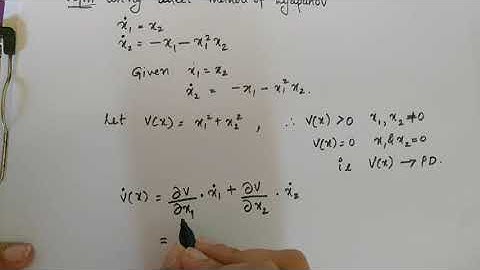 using direct method of Lyapanov
ẋ₁ = x₂
ẋ₂ = −x₁ − x₁² x₂
Given ẋ₁ = x₂
ẋ₂ = −x₁ − x₁² x₂.
Let V(x) = x₁² + x₂² , ∴ V(x) > 0 x₁, x₂ ≠ 0
V(x) = 0 x₁ & x₂ = 0
ie V(x) → PD.
V̇(x) = ∂V/∂x₁ · ẋ₁ + ∂V/∂x₂ · ẋ₂
=